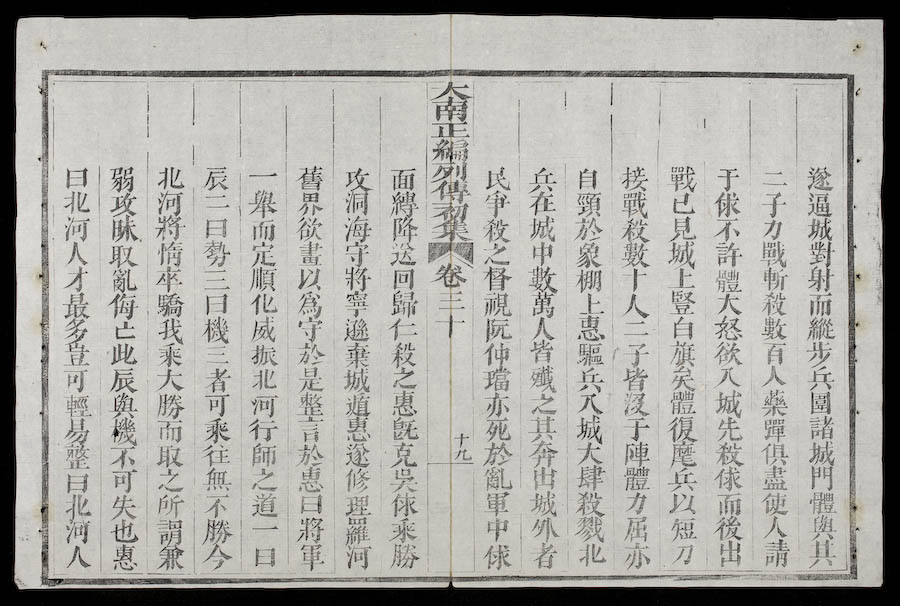 遂逼城對射而縱步兵圍諸城門體與其
二子力戰斬殺數百人藥彈俱盡使人請
于俅不許體大怒欲入城先殺俅而後出
戰已見城上豎白旗矣體復麾兵以短刀
接戰殺數十人二子皆沒于陣體力屈亦
自頸於象棚上惠驅兵入城大肆殺戮北
兵在城中數萬人皆殲之其奔出城外者
民爭殺之督視阮仲璫亦死於亂軍中俅
大南正編列傳初集 卷三十
十九
面縛降送回歸仁殺之惠旣克吳俅乘勝
攻洞海守將寧遜棄城遁惠遂修理羅河
舊界欲畫以爲守於是整言於惠曰將軍
一舉而定順化威振北河行師之道一曰
辰二曰勢三曰機三者可乘往無不勝今
北河將惰卒驕我乘大勝而取之所謂兼
弱攻昧取亂侮亡此辰與機不可失也惠
曰北河人才最多豈可輕易整曰北河人